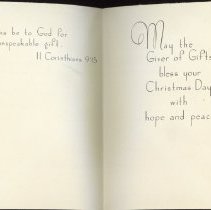 s be to God for
nspeakable gift.
II Corinthians 9:15
May the
Giver of Gifts
bless your
Christmas Day
with
hope and peac